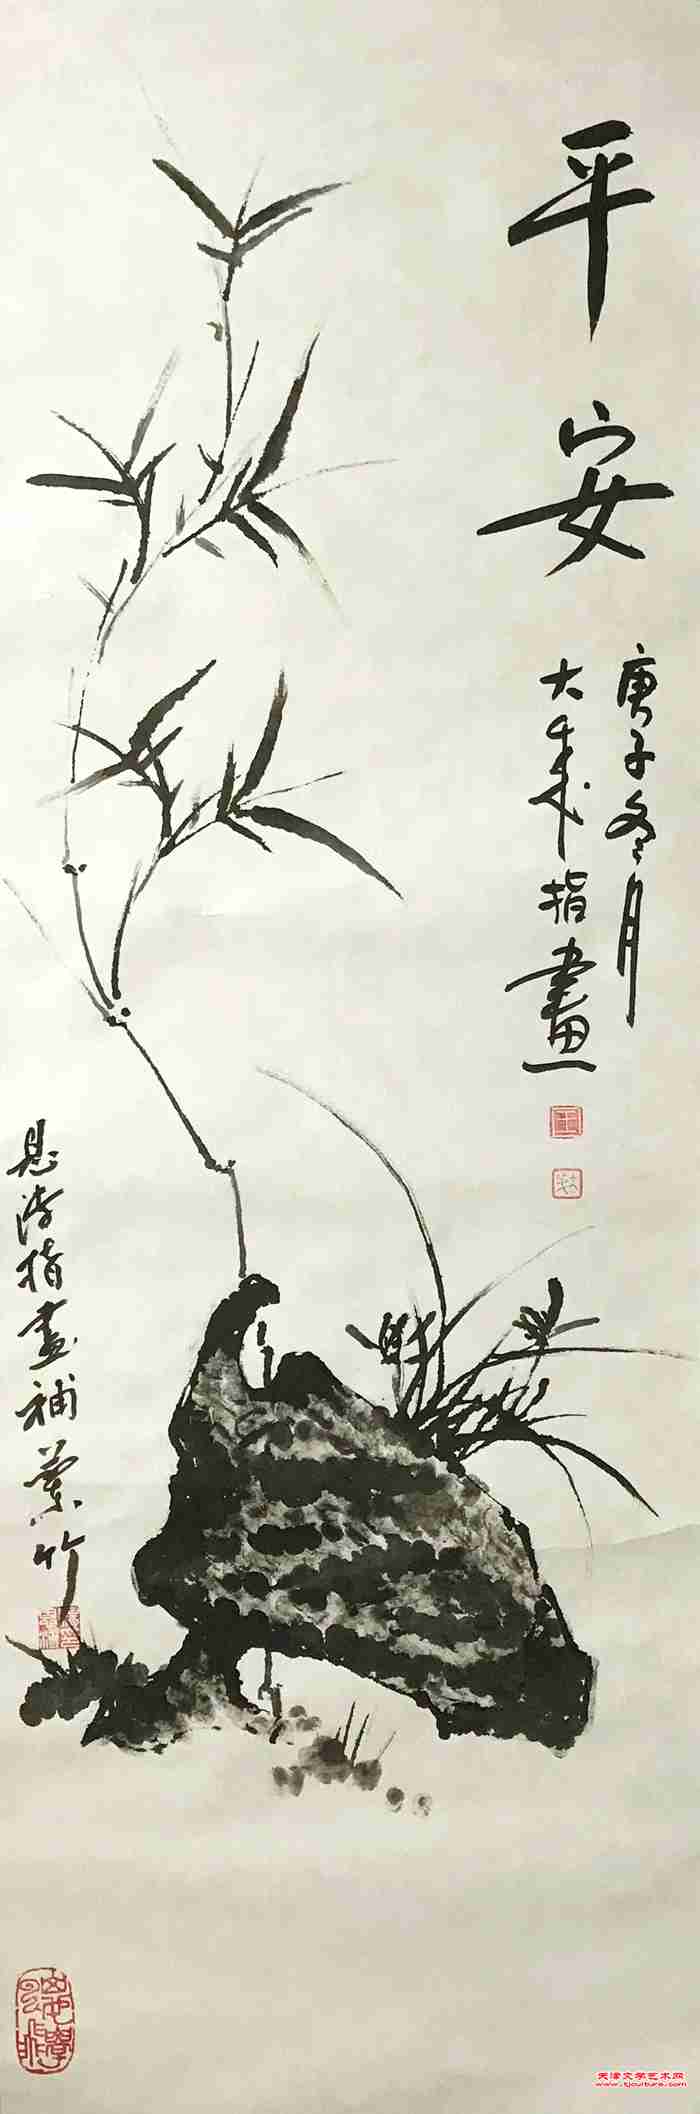 平安
庚子冬月
大成指画
指画補蘭竹
天津文学艺术网
www.tjculture.com